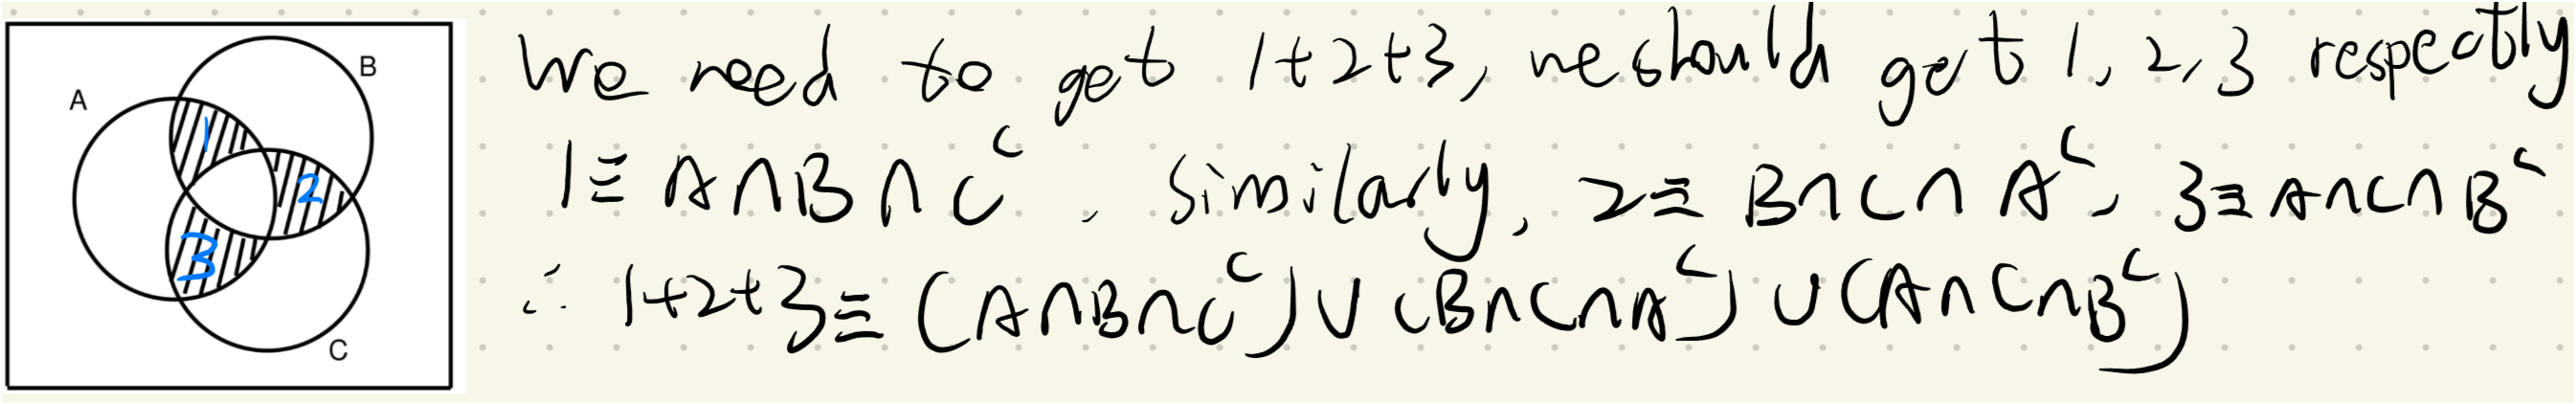 A
B
C
1
2
3
We need to get 1+2+3, we should get 1, 2, 3 respectly
1≡ A∩B∩C^c. Similarly, 2≡ B∩C∩A^c, 3≡ A∩C∩B^c
∴ 1+2+3≡ (A∩B∩C^c)∪(B∩C∩A^c)∪(A∩C∩B^c)